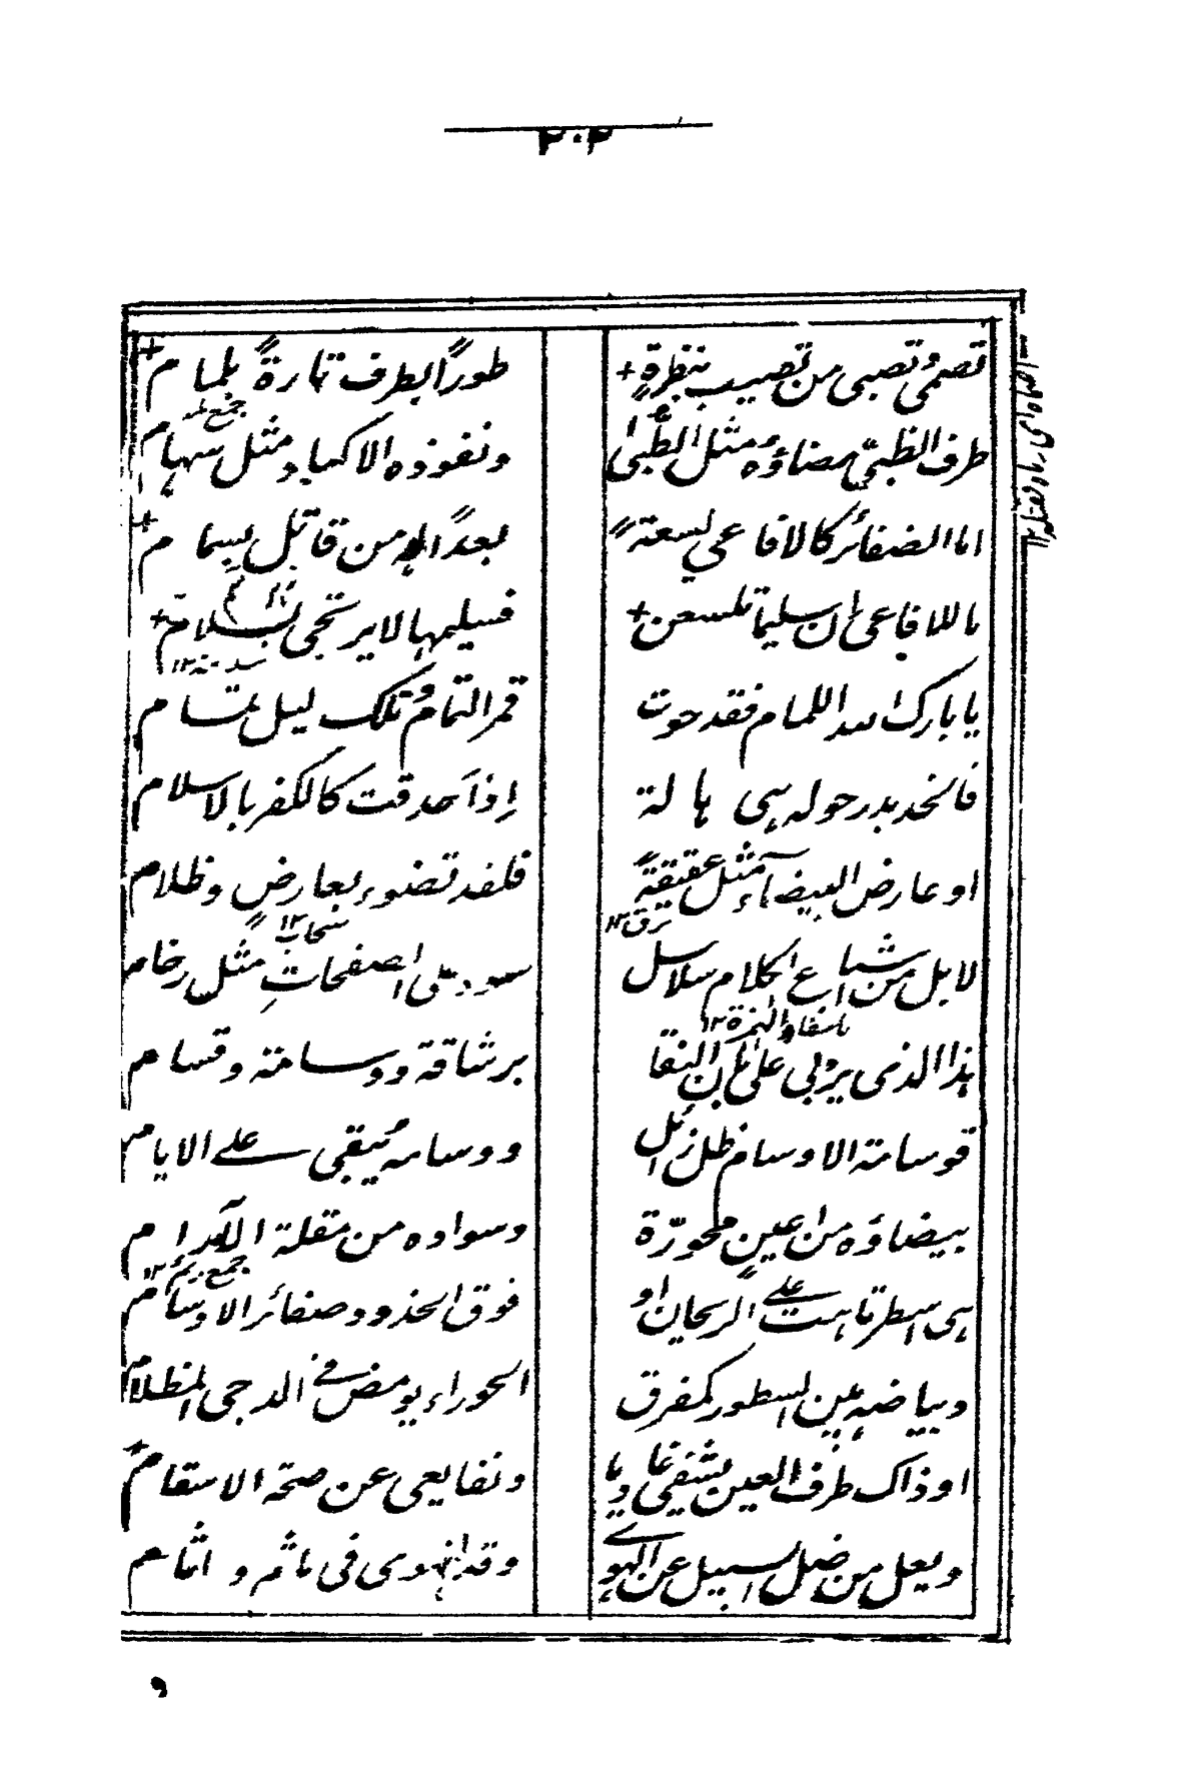 ٢٠٢
تصمي وتصبي من تصيب بنظرةٍ طوراً بطرف تارةً بلمام
جمع لمة
طرف الظبيّ مضاؤه مثل الظُّبى ونفوذه الاكباد مثل سهام
اما الضفائر كالافاعي لسعةً بعداً من قاتل بسمام
ما للافاعي ان سليما تلسعن فسليمها لا يرتجى لسلام
يا بارك الله اللمام فقد حوت قمر التمام وتلك ليل تمام
فالخد بدر حوله هي هالة اذا حدقت كالكفر بالاسلام
او عارض البيضاء مثل عقيقةً فلقد تضوء بعارضٍ وظلام
برق ١٢ سحاب ١٢
لا بل من اشباع الكلام سلاسل سود على صفحاتِ مثل رخام
هذا الذي يربي على بان النقا برشاقة ووسامة وقسام
قوسامة الاوسام ظل زائل ووسامه يبقى على الايام
بيضاؤه من اعين محورّة وسواده من مقلة الآرام
جمع ريم ١٢
هي اسطر تاهت على الريحان او فوق الخدود ضفائر الاوسام
وبياضه بين السطور كمفرق الحوراء يومض في الدجى المظلام
او ذاك طرف العين يشفي غاويا ونفا يعي عن صحة الاسقام
ويعل من ضل السبيل عن الهوى وقد انهوى في ماثم واثام
و